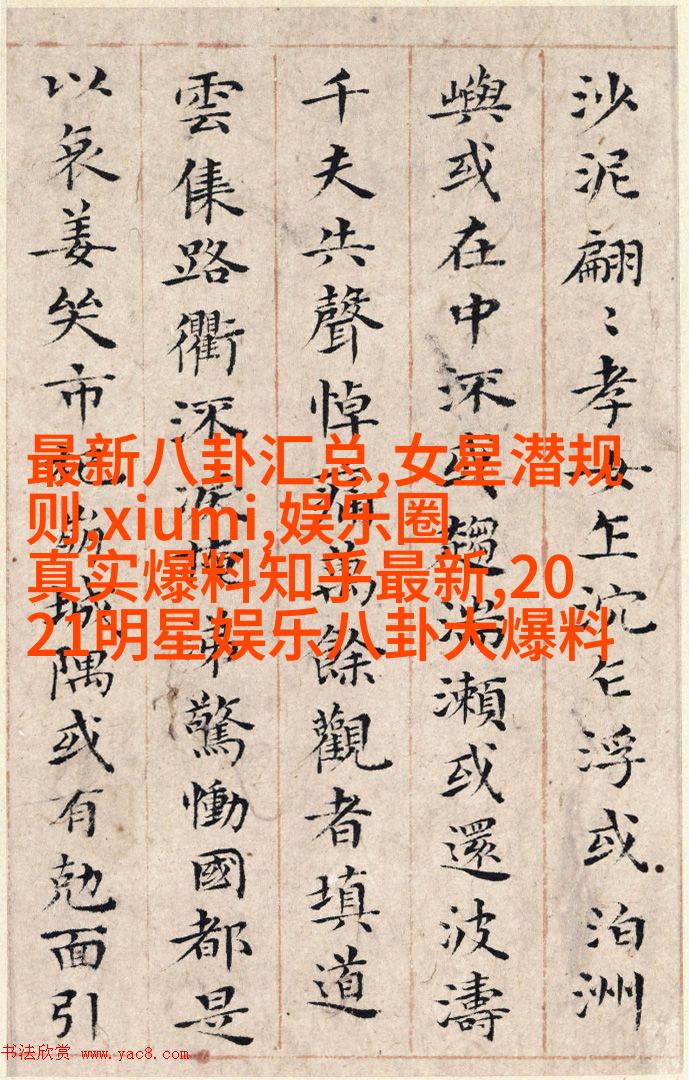 沙泥翩〻孝女乍沉乍浮或泊洲
嶼或在中深或趨湍瀨或還波濤
千夫失聲悼痛萬餘觀者填道
雲集路衢流泪掩涕驚慟國都是
以哀姜哭市杞崩城隅或有尅面引
最新八卦汇总,女星潜规
则,xiumi,娱乐圈
真实爆料知乎最新,20
21明星娱乐八卦大爆料
书法欣赏 www.yac8.com